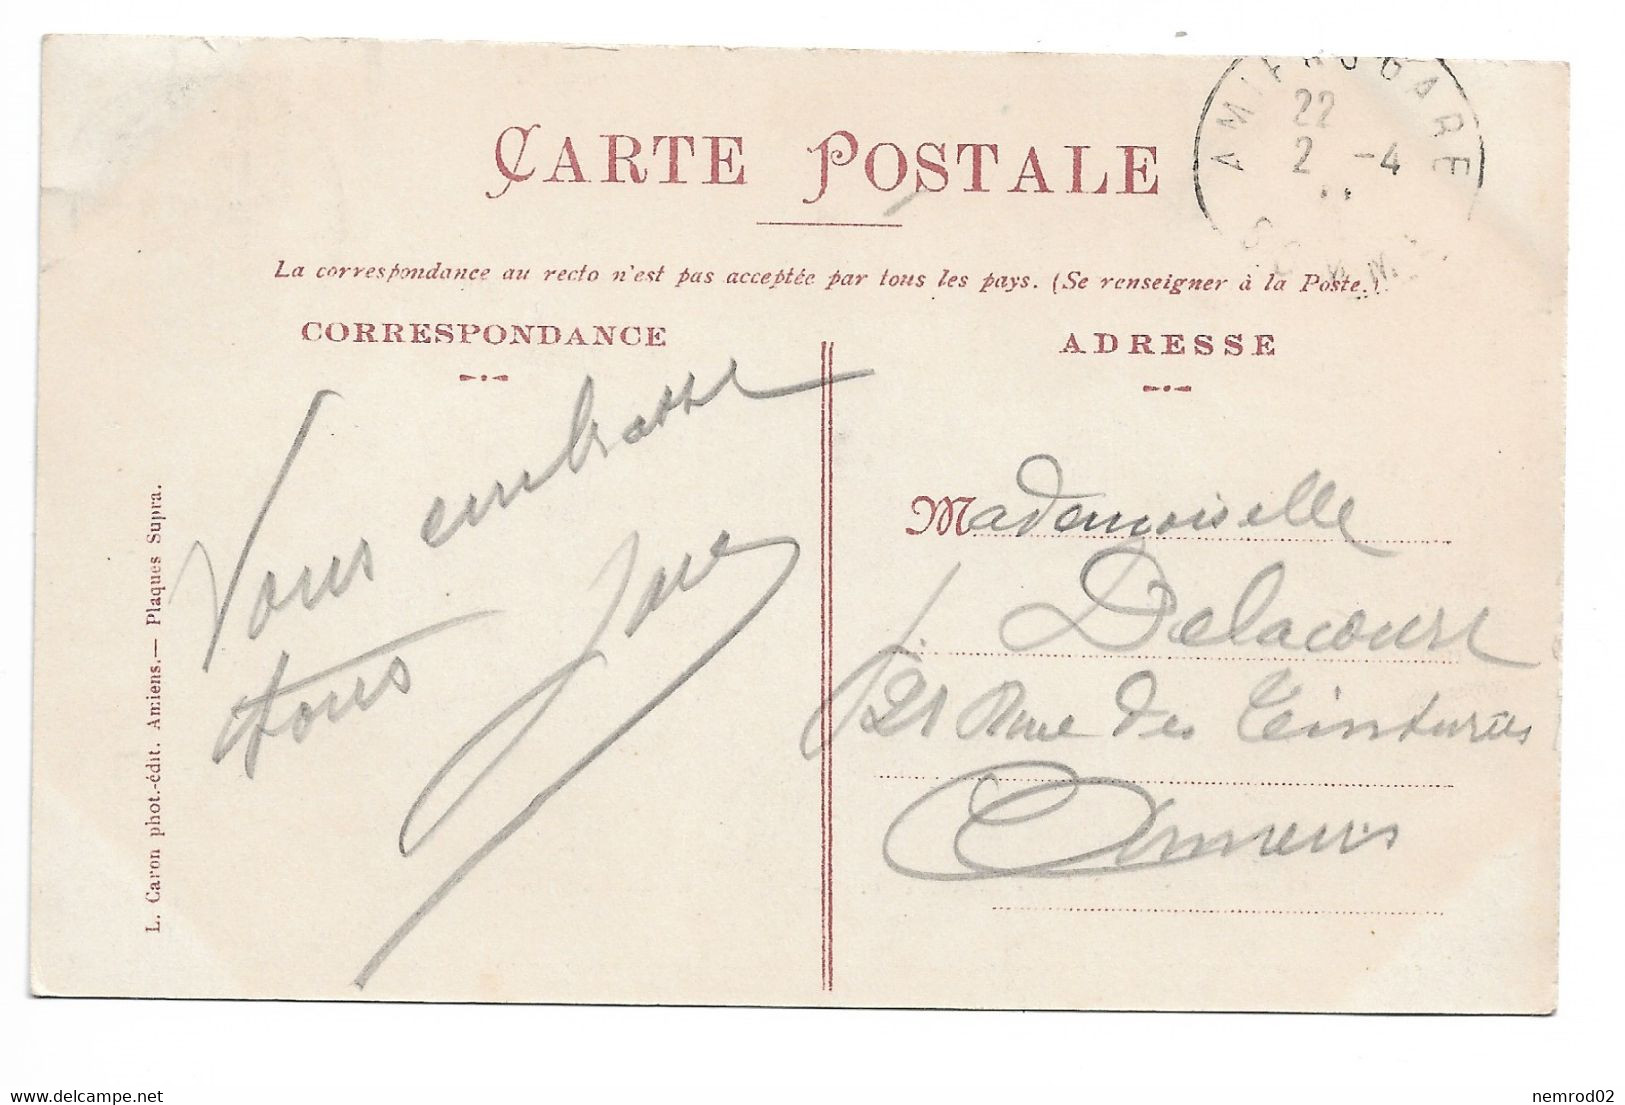 CARTE POSTALE
AMIENS GARE
22
2 -4
La correspondance au recto n'est pas acceptée par tous les pays. (Se renseigner à la Poste.)
CORRESPONDANCE
Vous embrasse
tous
ADRESSE
Mademoiselle
J. Delacourt
21 Rue des Teintures
Amiens
L. Caron phot.-édit. Amiens.— Plaques Supra.
www.delcampe.net
nemrod02